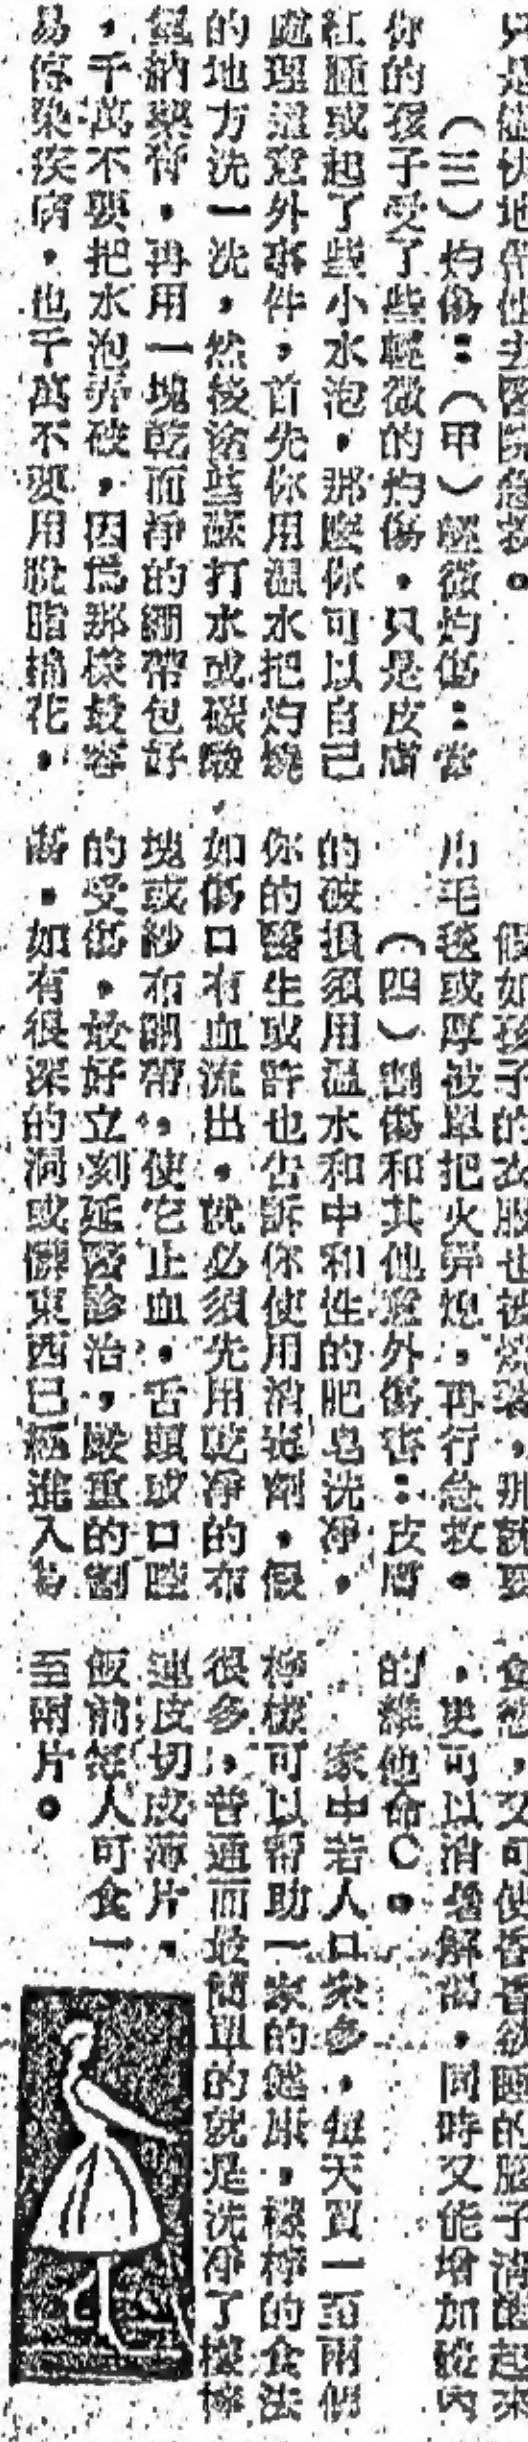 只是趕快地伴他去醫院急救。
（三）灼傷：（甲）輕微灼傷：當
你的孩子受了些輕微的灼傷，只是皮膚
紅腫或起了些小水泡，那麼你可以自己
處理這意外事件，首先你用溫水把灼燒
的地方洗一洗，然後塗些蘇打水或碳酸
納藥膏，再用一塊乾而淨的綳帶包好
，千萬不要把水泡弄破，因為那樣最容
易傳染疾病，也千萬不要用脫脂綿花，
假如孩子的衣服也被燒着，那就要
用毛毯或厚被單把火弄熄，再行急救。
（四）割傷和其他意外傷害：皮膚
的破損須用溫水和中和性的肥皂洗淨，
你的醫生或許也告訴你使用消毒劑，假
如傷口有血流出，就必須先用乾淨的布
塊或紗布綳帶，使它止血，舌頭或口腔
的受傷，最好立刻延醫診治，嚴重的割
傷，如有很深的洞或髒東西已經進入
食慾，又可使昏昏欲睡的腦子清醒起來
，更可以消暑解渴，同時又能增加體內
的維他命C。
家中若人口衆多，每天買一至兩個
檸檬可以幫助一家的健康，檸檬的食法
很多，普通而最簡單的就是洗淨了檸檬
連皮切成薄片，
飯前每人可食一
至兩片。